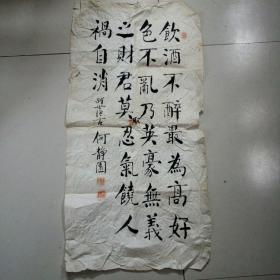 飲酒不醉最為高好
色不亂乃英豪無義
之財君莫忍氣饒人
禍自消
何靜園